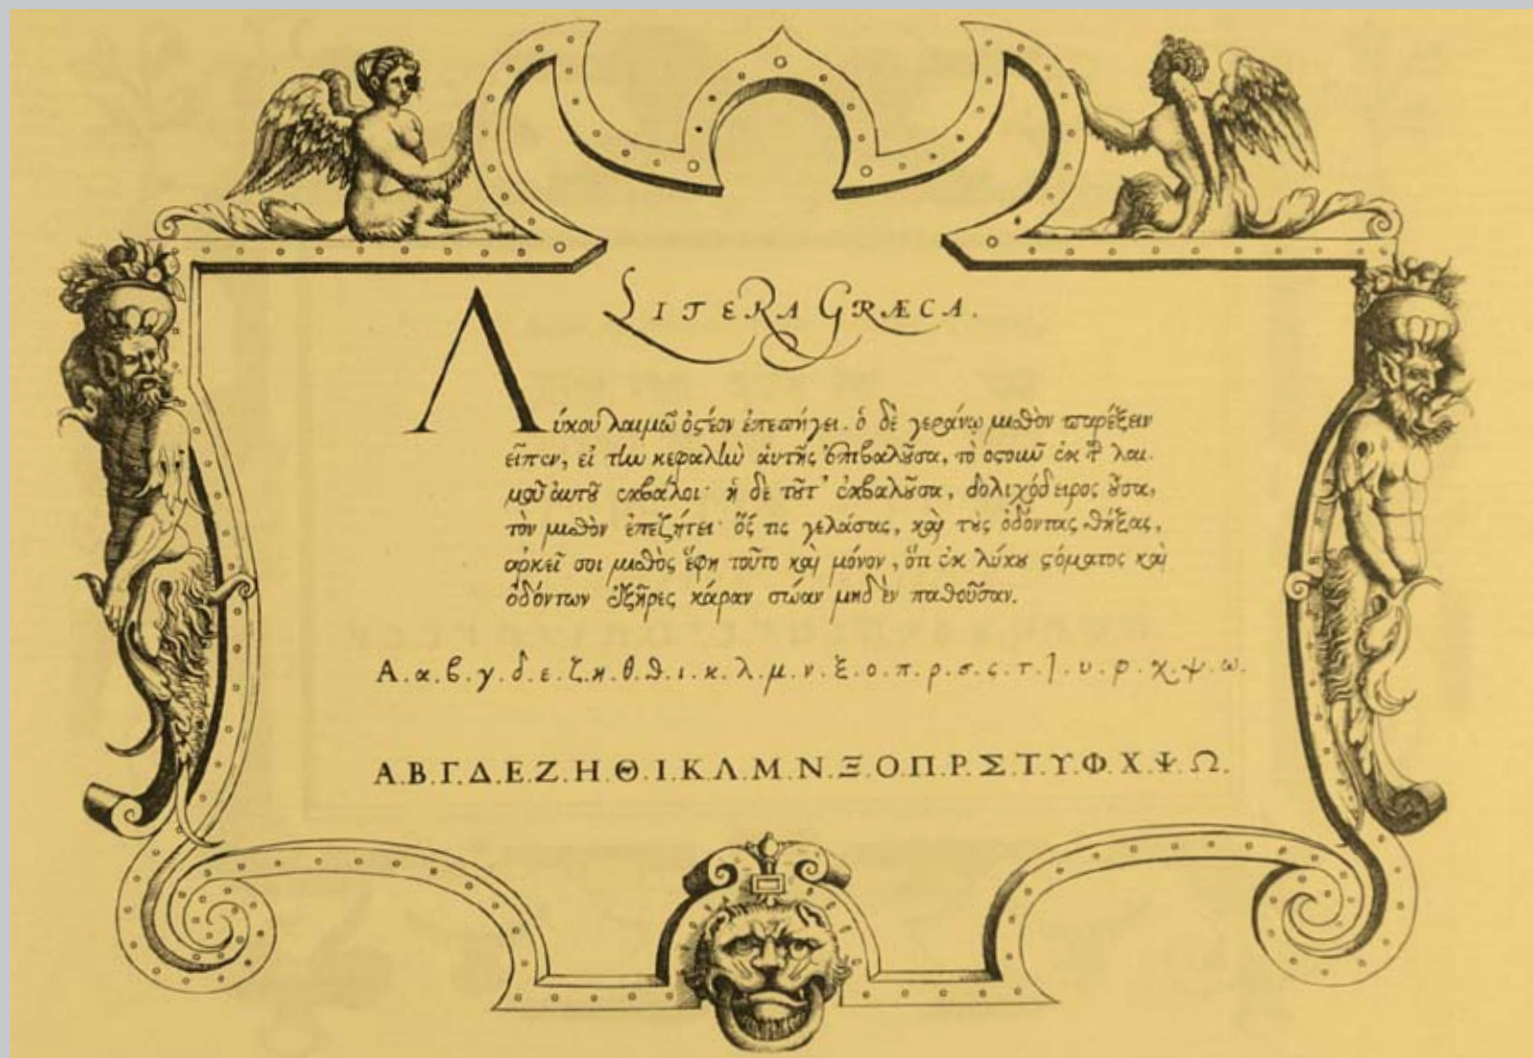 LITERA GRÆCA.
Λύκου λαιμῷ ὀστέον ἐπεπήγει. ὁ δὲ γεράνῳ μισθὸν παρέξειν
εἶπεν, εἰ τὴν κεφαλὴν αὐτῆς ἐπιβαλοῦσα, τὸ ὀστοῦν ἐκ τοῦ λαι-
μοῦ αὐτοῦ ἐκβάλοι· ἡ δὲ τοῦτ' ἐκβαλοῦσα, δολιχόδειρος οὖσα,
τὸν μισθὸν ἐπεζήτει· ὅς τις γελάσας, καὶ τοὺς ὀδόντας θήξας,
ἀρκεῖ σοι μισθὸς ἔφη τοῦτο καὶ μόνον, ὅτι ἐκ λύκου στόματος καὶ
ὀδόντων ἐξῆρες κάραν σώαν μηδὲν παθοῦσαν.
Α.α.β.γ.δ.ε.ζ.η.θ.ϑ.ι.κ.λ.μ.ν.ξ.ο.π.ρ.σ.ς.τ.˥.υ.φ.χ.ψ.ω.
Α.Β.Γ.Δ.Ε.Ζ.Η.Θ.Ι.Κ.Λ.Μ.Ν.Ξ.Ο.Π.Ρ.Σ.Τ.Υ.Φ.Χ.Ψ.Ω.